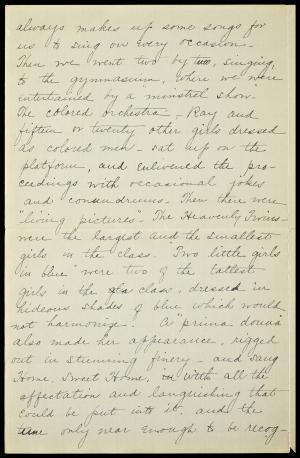 always makes up some songs for
us to sing on every occasion.
Then we went two by two, singing,
to the gymnasium, where we were
entertained by a "minstrel show".
The colored orchestra - Ray and
fifteen or twenty other girls dressed
as colored men - sat up on the
platform, and enlivened the pro-
ceedings with occasional jokes
and conundrums. Then there were
"living pictures" - The Heavenly Twins -
were the largest and the smallest
girls in the class. "Two little girls
in blue" were two of the tallest
girls in the class, dressed in
hideous shades of blue which would
not harmonize. A "prima donna"
also made her appearance, rigged
out in stunning finery - and sang
Home, Sweet Home, with all the
affectation and languishing that
could be put into it, and the
tune only near enough to be recog-